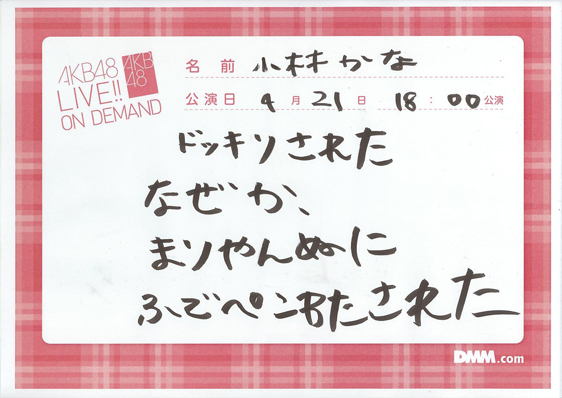 AKB48
LIVE!!
ON DEMAND
AKB
48
名前 小林かな
公演日 4月21日 18:00公演
ドッキリされた
なぜか、
まりやんぬに
ふでペンわたされた
DMM.com